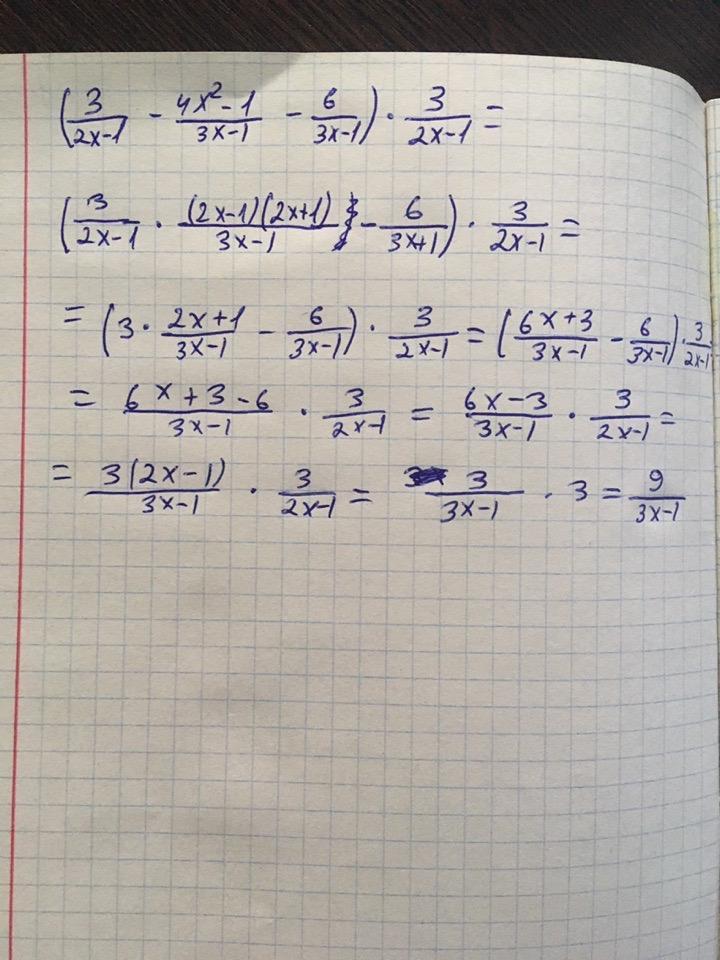 (3/(2x-1) - (4x²-1)/(3x-1) - 6/(3x-1)) · 3/(2x-1) =
(3/(2x-1) · ((2x-1)(2x+1))/(3x-1) - 6/(3x+1)) · 3/(2x-1) =
= (3 · (2x+1)/(3x-1) - 6/(3x-1)) · 3/(2x-1) = ((6x+3)/(3x-1) - 6/(3x-1)) · 3/(2x-1)
= (6x+3-6)/(3x-1) · 3/(2x-1) = (6x-3)/(3x-1) · 3/(2x-1) =
= (3(2x-1))/(3x-1) · 3/(2x-1) = 3/(3x-1) · 3 = 9/(3x-1)